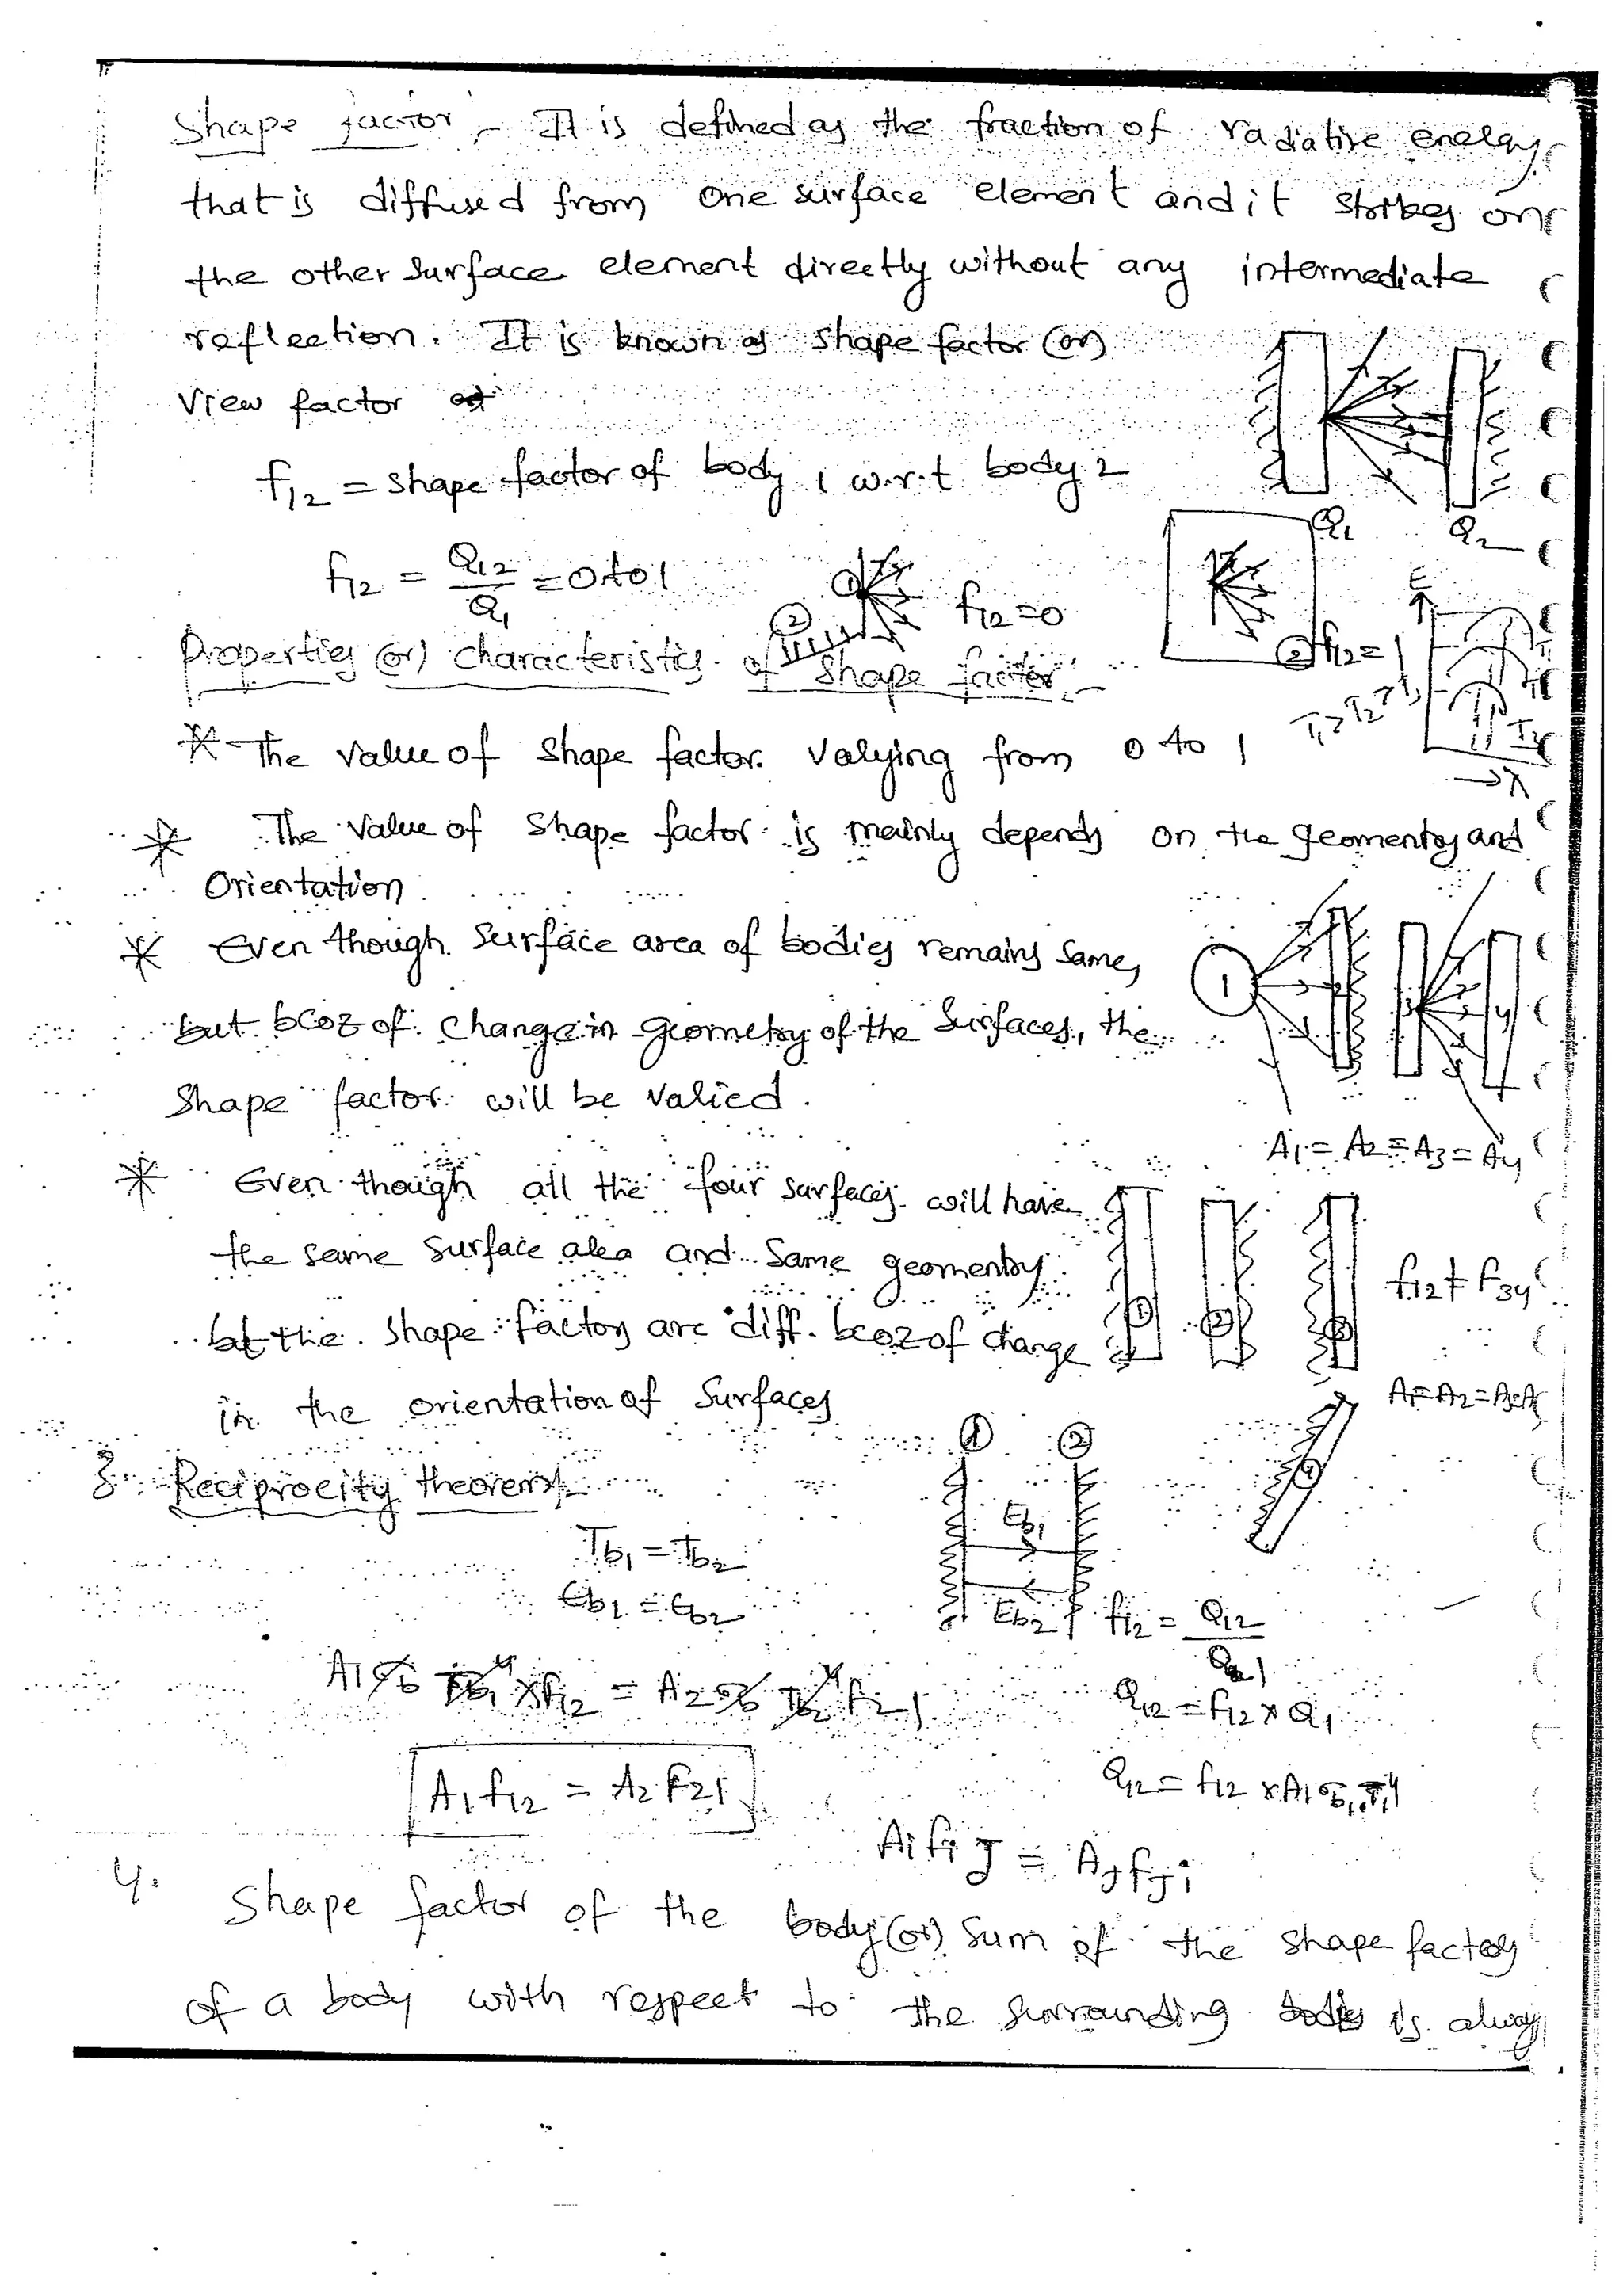 Shape factor :- It is defined as the fraction of radiative energy
that is diffused from one surface element and it strikes on
the other surface element directly without any intermediate
reflection. It is known as shape factor (or)
View factor
f12 = shape factor of body 1 w.r.t body 2
Q1 Q2
f12 = Q12/Q1 = 0 to 1
1 2 f12=0
2 f12=1
E
T1>T2>T3
→λ
Properties (or) characteristics of shape factor:-
* The value of shape factor varying from 0 to 1
* The value of shape factor is mainly depends on the geomentry and
Orientation
* Even though surface area of bodies remains same,
but bcoz of change in geometry of the surfaces, the
shape factor will be varied.
1 2 3 4
A1 = A2 = A3 = A4
* Even though all the four surfaces will have
the same surface area and same geomentry
but the shape factors are diff. bcoz of change
in the orientation of surfaces
1 2 3 4
f12 ≠ F34
A1=A2=A3=A4
3. Reciprocity theorem:-
1 2
Eb1
Eb2
Tb1 = Tb2
Eb1 = Eb2
f12 = Q12/Q1
A1 σb Tb1⁴ × f12 = A2 σb Tb2⁴ f21
Q12 = f12 × Q1
A1 f12 = A2 F21
Q12 = f12 × A1 σb1 T1⁴
Ai fij = Aj fji
4. Shape factor of the body (or) sum of the shape factors
of a body with respect to the surrounding bodies is always